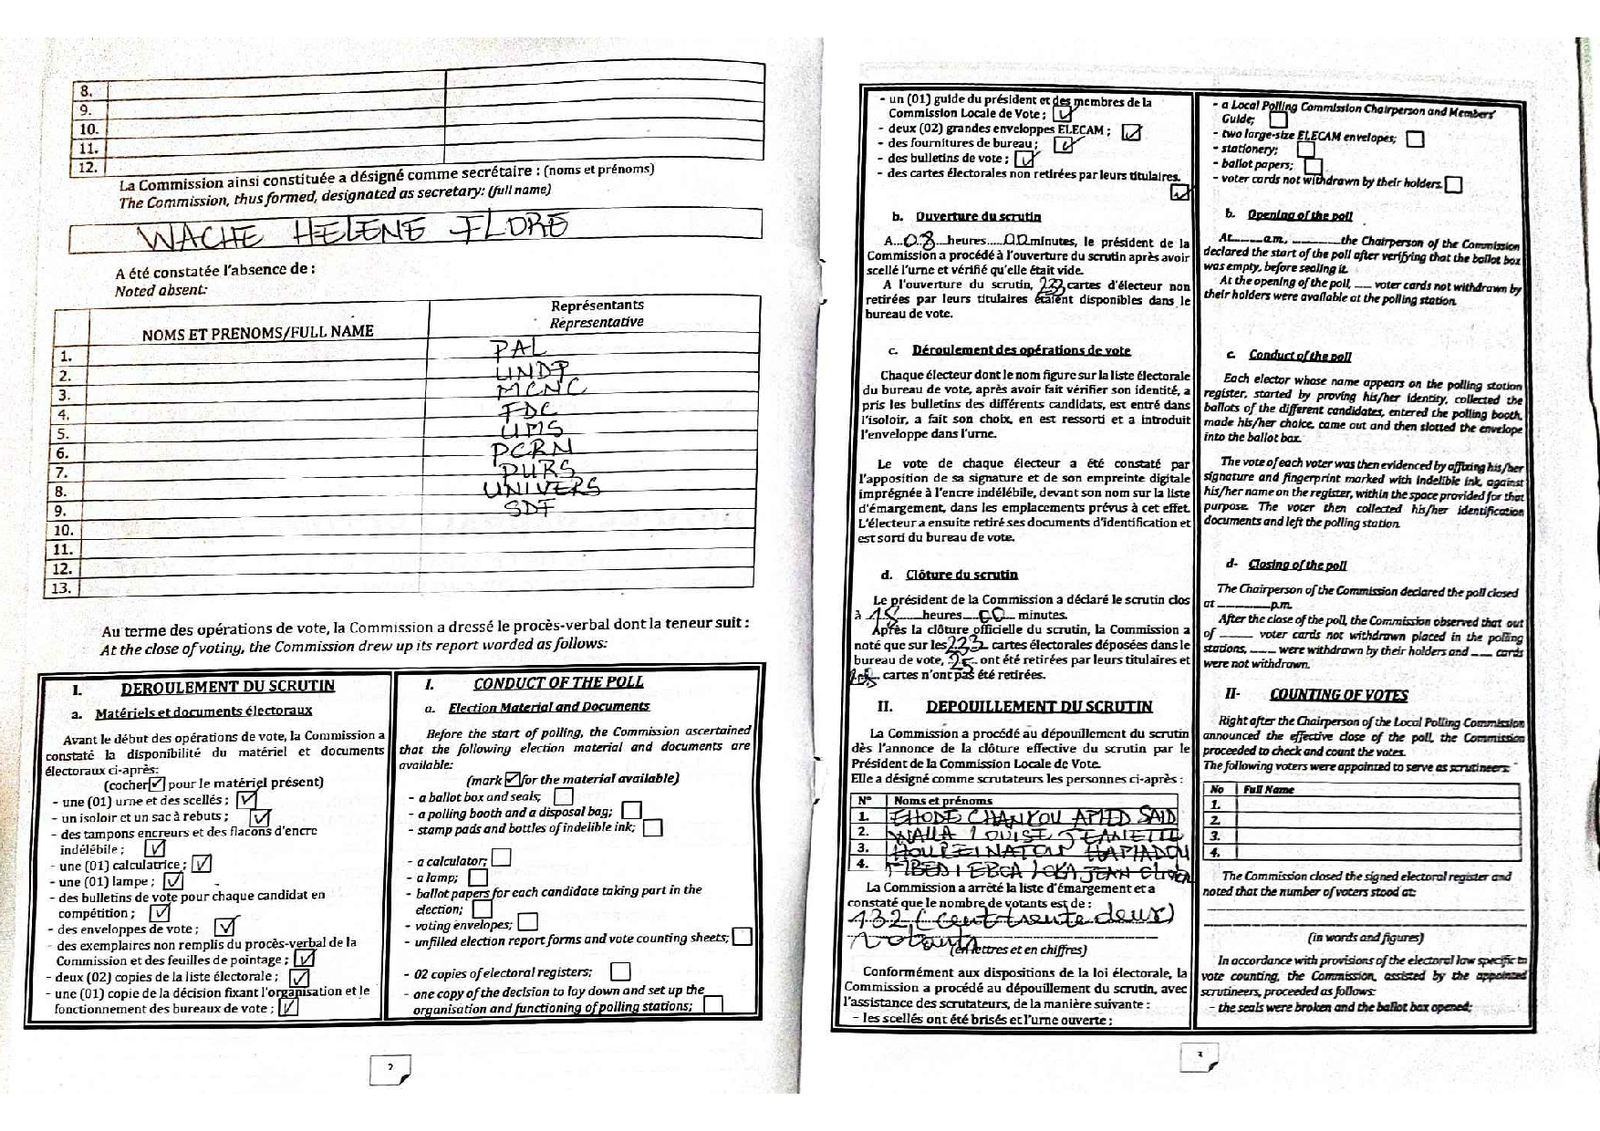 8.
9.
10.
11.
12.
La Commission ainsi constituée a désigné comme secrétaire : (noms et prénoms)
The Commission, thus formed, designated as secretary: (full name)
WACHE HELENE FLORE
A été constatée l'absence de :
Noted absent:
NOMS ET PRENOMS/FULL NAME
Représentants
Représentative
1. PAL
2. UNDP
3. MCNC
4. FDC
5. UMS
6. PCRN
7. PURS
8. UNIVERS
9. SDF
10.
11.
12.
13.
Au terme des opérations de vote, la Commission a dressé le procès-verbal dont la teneur suit :
At the close of voting, the Commission drew up its report worded as follows:
I. DEROULEMENT DU SCRUTIN
a. Matériels et documents électoraux
Avant le début des opérations de vote, la Commission a
constaté la disponibilité du matériel et documents
électoraux ci-après:
(cocher ☑ pour le matériel présent)
- une (01) urne et des scellés ; ☑
- un isoloir et un sac à rebuts ; ☑
- des tampons encreurs et des flacons d'encre
indélébile ; ☑
- une (01) calculatrice ; ☑
- une (01) lampe ; ☑
- des bulletins de vote pour chaque candidat en
compétition ; ☑
- des enveloppes de vote ; ☑
- des exemplaires non remplis du procès-verbal de la
Commission et des feuilles de pointage ; ☑
- deux (02) copies de la liste électorale ; ☑
- une (01) copie de la décision fixant l'organisation et le
fonctionnement des bureaux de vote ; ☑
I. CONDUCT OF THE POLL
a. Election Material and Documents
Before the start of polling, the Commission ascertained
that the following election material and documents are
available:
(mark ☑ for the material available)
- a ballot box and seals; ☐
- a polling booth and a disposal bag; ☐
- stamp pads and bottles of indelible ink; ☐
- a calculator; ☐
- a lamp; ☐
- ballot papers for each candidate taking part in the
election; ☐
- voting envelopes; ☐
- unfilled election report forms and vote counting sheets; ☐
- 02 copies of electoral registers; ☐
- one copy of the decision to lay down and set up the
organisation and functioning of polling stations; ☐
2
- un (01) guide du président et des membres de la
Commission Locale de Vote ; ☑
- deux (02) grandes enveloppes ELECAM ; ☑
- des fournitures de bureau ; ☑
- des bulletins de vote ; ☑
- des cartes électorales non retirées par leurs titulaires.
☑
b. Ouverture du scrutin
A...08...heures....00 minutes, le président de la
Commission a procédé à l'ouverture du scrutin après avoir
scellé l'urne et vérifié qu'elle était vide.
A l'ouverture du scrutin, 233 cartes d'électeur non
retirées par leurs titulaires étaient disponibles dans le
bureau de vote.
c. Déroulement des opérations de vote
Chaque électeur dont le nom figure sur la liste électorale
du bureau de vote, après avoir fait vérifier son identité, a
pris les bulletins des différents candidats, est entré dans
l'isoloir, a fait son choix, en est ressorti et a introduit
l'enveloppe dans l'urne.
Le vote de chaque électeur a été constaté par
l'apposition de sa signature et de son empreinte digitale
imprégnée à l'encre indélébile, devant son nom sur la liste
d'émargement, dans les emplacements prévus à cet effet.
L'électeur a ensuite retiré ses documents d'identification et
est sorti du bureau de vote.
d. Clôture du scrutin
Le président de la Commission a déclaré le scrutin clos
à 18 heures 00 minutes.
Après la clôture officielle du scrutin, la Commission a
noté que sur les cartes électorales déposées dans le
bureau de vote, 25 ont été retirées par leurs titulaires et
cartes n'ont pas été retirées.
II. DEPOUILLEMENT DU SCRUTIN
La Commission a procédé au dépouillement du scrutin
dès l'annonce de la clôture effective du scrutin par le
Président de la Commission Locale de Vote.
Elle a désigné comme scrutateurs les personnes ci-après :
N° Noms et prénoms
1. SAID
2. LOUISE JEANETTE
3.
4. JEAN
La Commission a arrêté la liste d'émargement et a
constaté que le nombre de votants est de :
132 (cent trente deux)
votants
(en lettres et en chiffres)
Conformément aux dispositions de la loi électorale, la
Commission a procédé au dépouillement du scrutin, avec
l'assistance des scrutateurs, de la manière suivante :
- les scellés ont été brisés et l'urne ouverte ;
- a Local Polling Commission Chairperson and Members'
Guide; ☐
- two large-size ELECAM envelopes; ☐
- stationery; ☐
- ballot papers; ☐
- voter cards not withdrawn by their holders. ☐
b. Opening of the poll
At____a.m, ____the Chairperson of the Commission
declared the start of the poll after verifying that the ballot box
was empty, before sealing it.
At the opening of the poll, ___ voter cards not withdrawn by
their holders were available at the polling station.
c. Conduct of the poll
Each elector whose name appears on the polling station
register, started by proving his/her identity, collected the
ballots of the different candidates, entered the polling booth,
made his/her choice, came out and then slotted the envelope
into the ballot box.
The vote of each voter was then evidenced by affixing his/her
signature and fingerprint marked with indelible ink, against
his/her name on the register, within the space provided for that
purpose. The voter then collected his/her identification
documents and left the polling station.
d- Closing of the poll
The Chairperson of the Commission declared the poll closed
at ________p.m.
After the close of the poll, the Commission observed that out
of _____ voter cards not withdrawn placed in the polling
stations, ____ were withdrawn by their holders and ___ cards
were not withdrawn.
II- COUNTING OF VOTES
Right after the Chairperson of the Local Polling Commission
announced the effective close of the poll, the Commission
proceeded to check and count the votes.
The following voters were appointed to serve as scrutineers:
No Full Name
1.
2.
3.
4.
The Commission closed the signed electoral register and
noted that the number of voters stood at:
(in words and figures)
In accordance with provisions of the electoral law specific to
vote counting, the Commission, assisted by the appointed
scrutineers, proceeded as follows:
- the seals were broken and the ballot box opened;
3